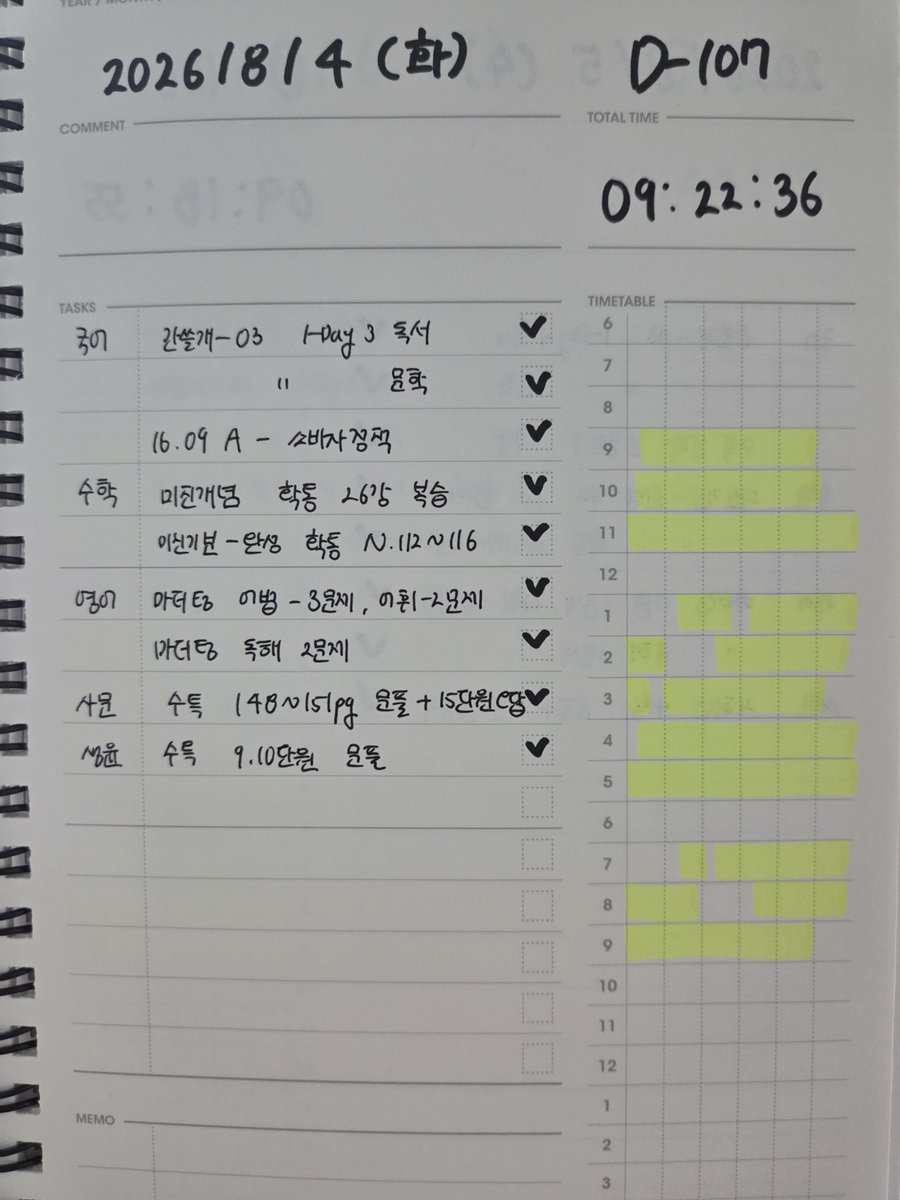 YEAR / MONTH
2026/8/4 (화)
D-107
COMMENT
TOTAL TIME
09:22:36
TASKS
국어 간쓸개-03 1-Day 3 독서
" 문학
16.09 A - 소비자정책
수학 미친개념 학통 26강 복습
이신기본-완성 학통 N.112~116
영어 마더텅 어법-3문제, 어휘-2문제
마더텅 독해 2문제
사문 수특 148~151pg 문풀+15단원
생윤 수특 9.10단원 문풀
TIMETABLE
6
7
8
9
10
11
12
1
2
3
4
5
6
7
8
9
10
11
12
1
2
3
MEMO